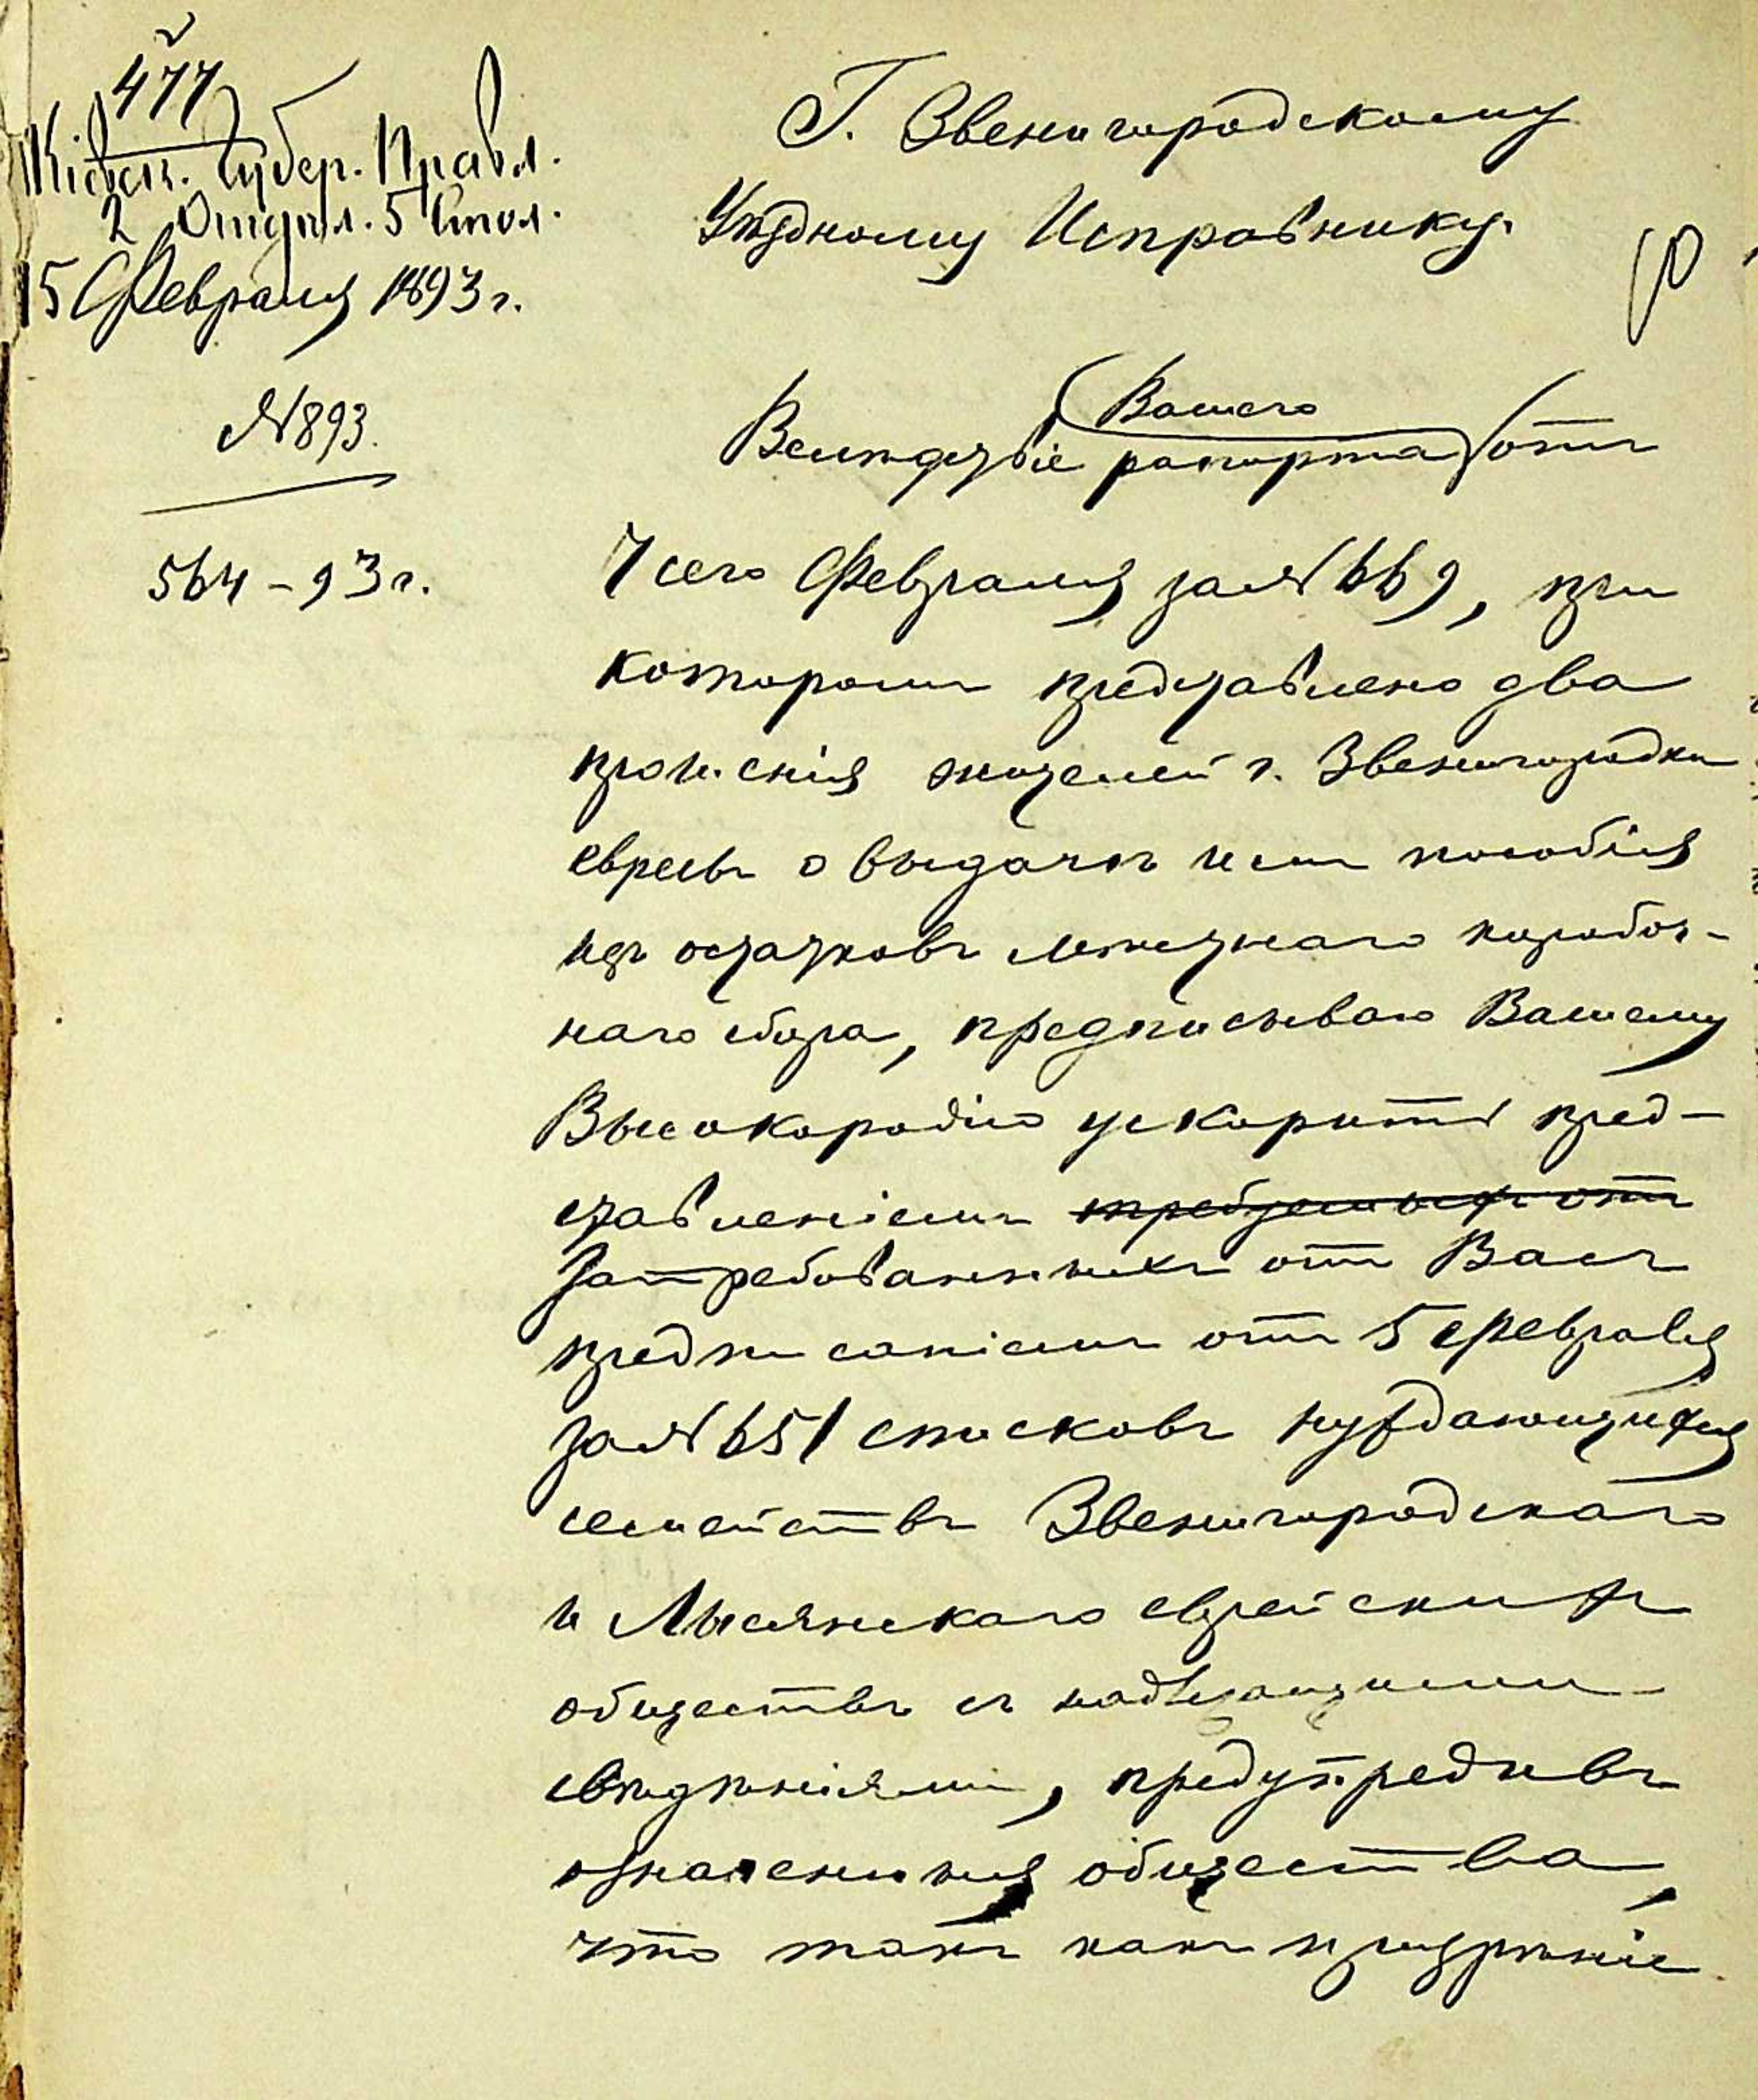 477
Кіевск. Губер. Правл.
2 Отдѣл. 5 Стол.
15 Февраля 1893 г.
№ 893.
564 - 93 г.
Г. Звенигородскому
Уѣздному Исправнику.
Вашего
Вслѣдствіе рапорта отъ
7 сего Февраля за № 669, при
которомъ представлено два
прошенія жителей г. Звенигородки
евреевъ о выдачѣ имъ пособія
изъ остатковъ мѣстнаго коробоч-
наго сбора, предписываю Вашему
Высокородію ускорить пред-
ставленіемъ требуемыхъ отъ
затребованныхъ отъ Васъ
предписаніемъ отъ 5 февраля
за № 651 списковъ нуждающихся
семействъ Звенигородскаго
и Лысянскаго еврейскихъ
обществъ съ надлежащими
свѣдѣніями, предупредивъ
означенныя общества,
что такъ какъ призрѣніе